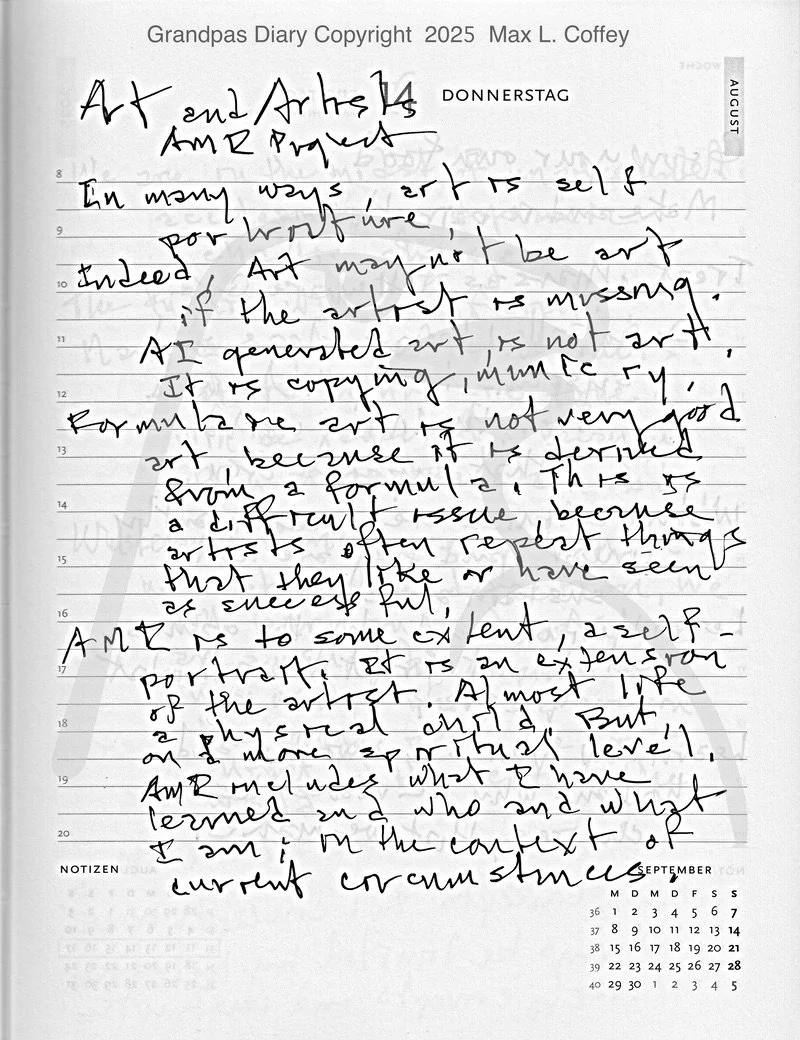 Grandpas Diary Copyright 2025 Max L. Coffey
Art and Artists 14 DONNERSTAG
AUGUST
AMR Project
8
In many ways, art is self
9
portraiture,
Indeed, Art may not be art
10
if the artist is missing.
11
AI generated art is not art,
It is copying, mimicry,
12
Formulaic art is not very good
13
art, because it is derived
from a formula. This is
14
a difficult issue, because
artists often repeat things
15
that they like or have seen
as successful,
16
AMR is to some extent, a self-
17
portrait. It is an extension
of the artist. Almost like
18
a physical child. But,
on a more spiritual level,
19
AMR includes what I have
learned and who and what
20
I am; in the context of
NOTIZEN
current circumstances.
SEPTEMBER
M D M D F S S
36 1 2 3 4 5 6 7
37 8 9 10 11 12 13 14
38 15 16 17 18 19 20 21
39 22 23 24 25 26 27 28
40 29 30 1 2 3 4 5